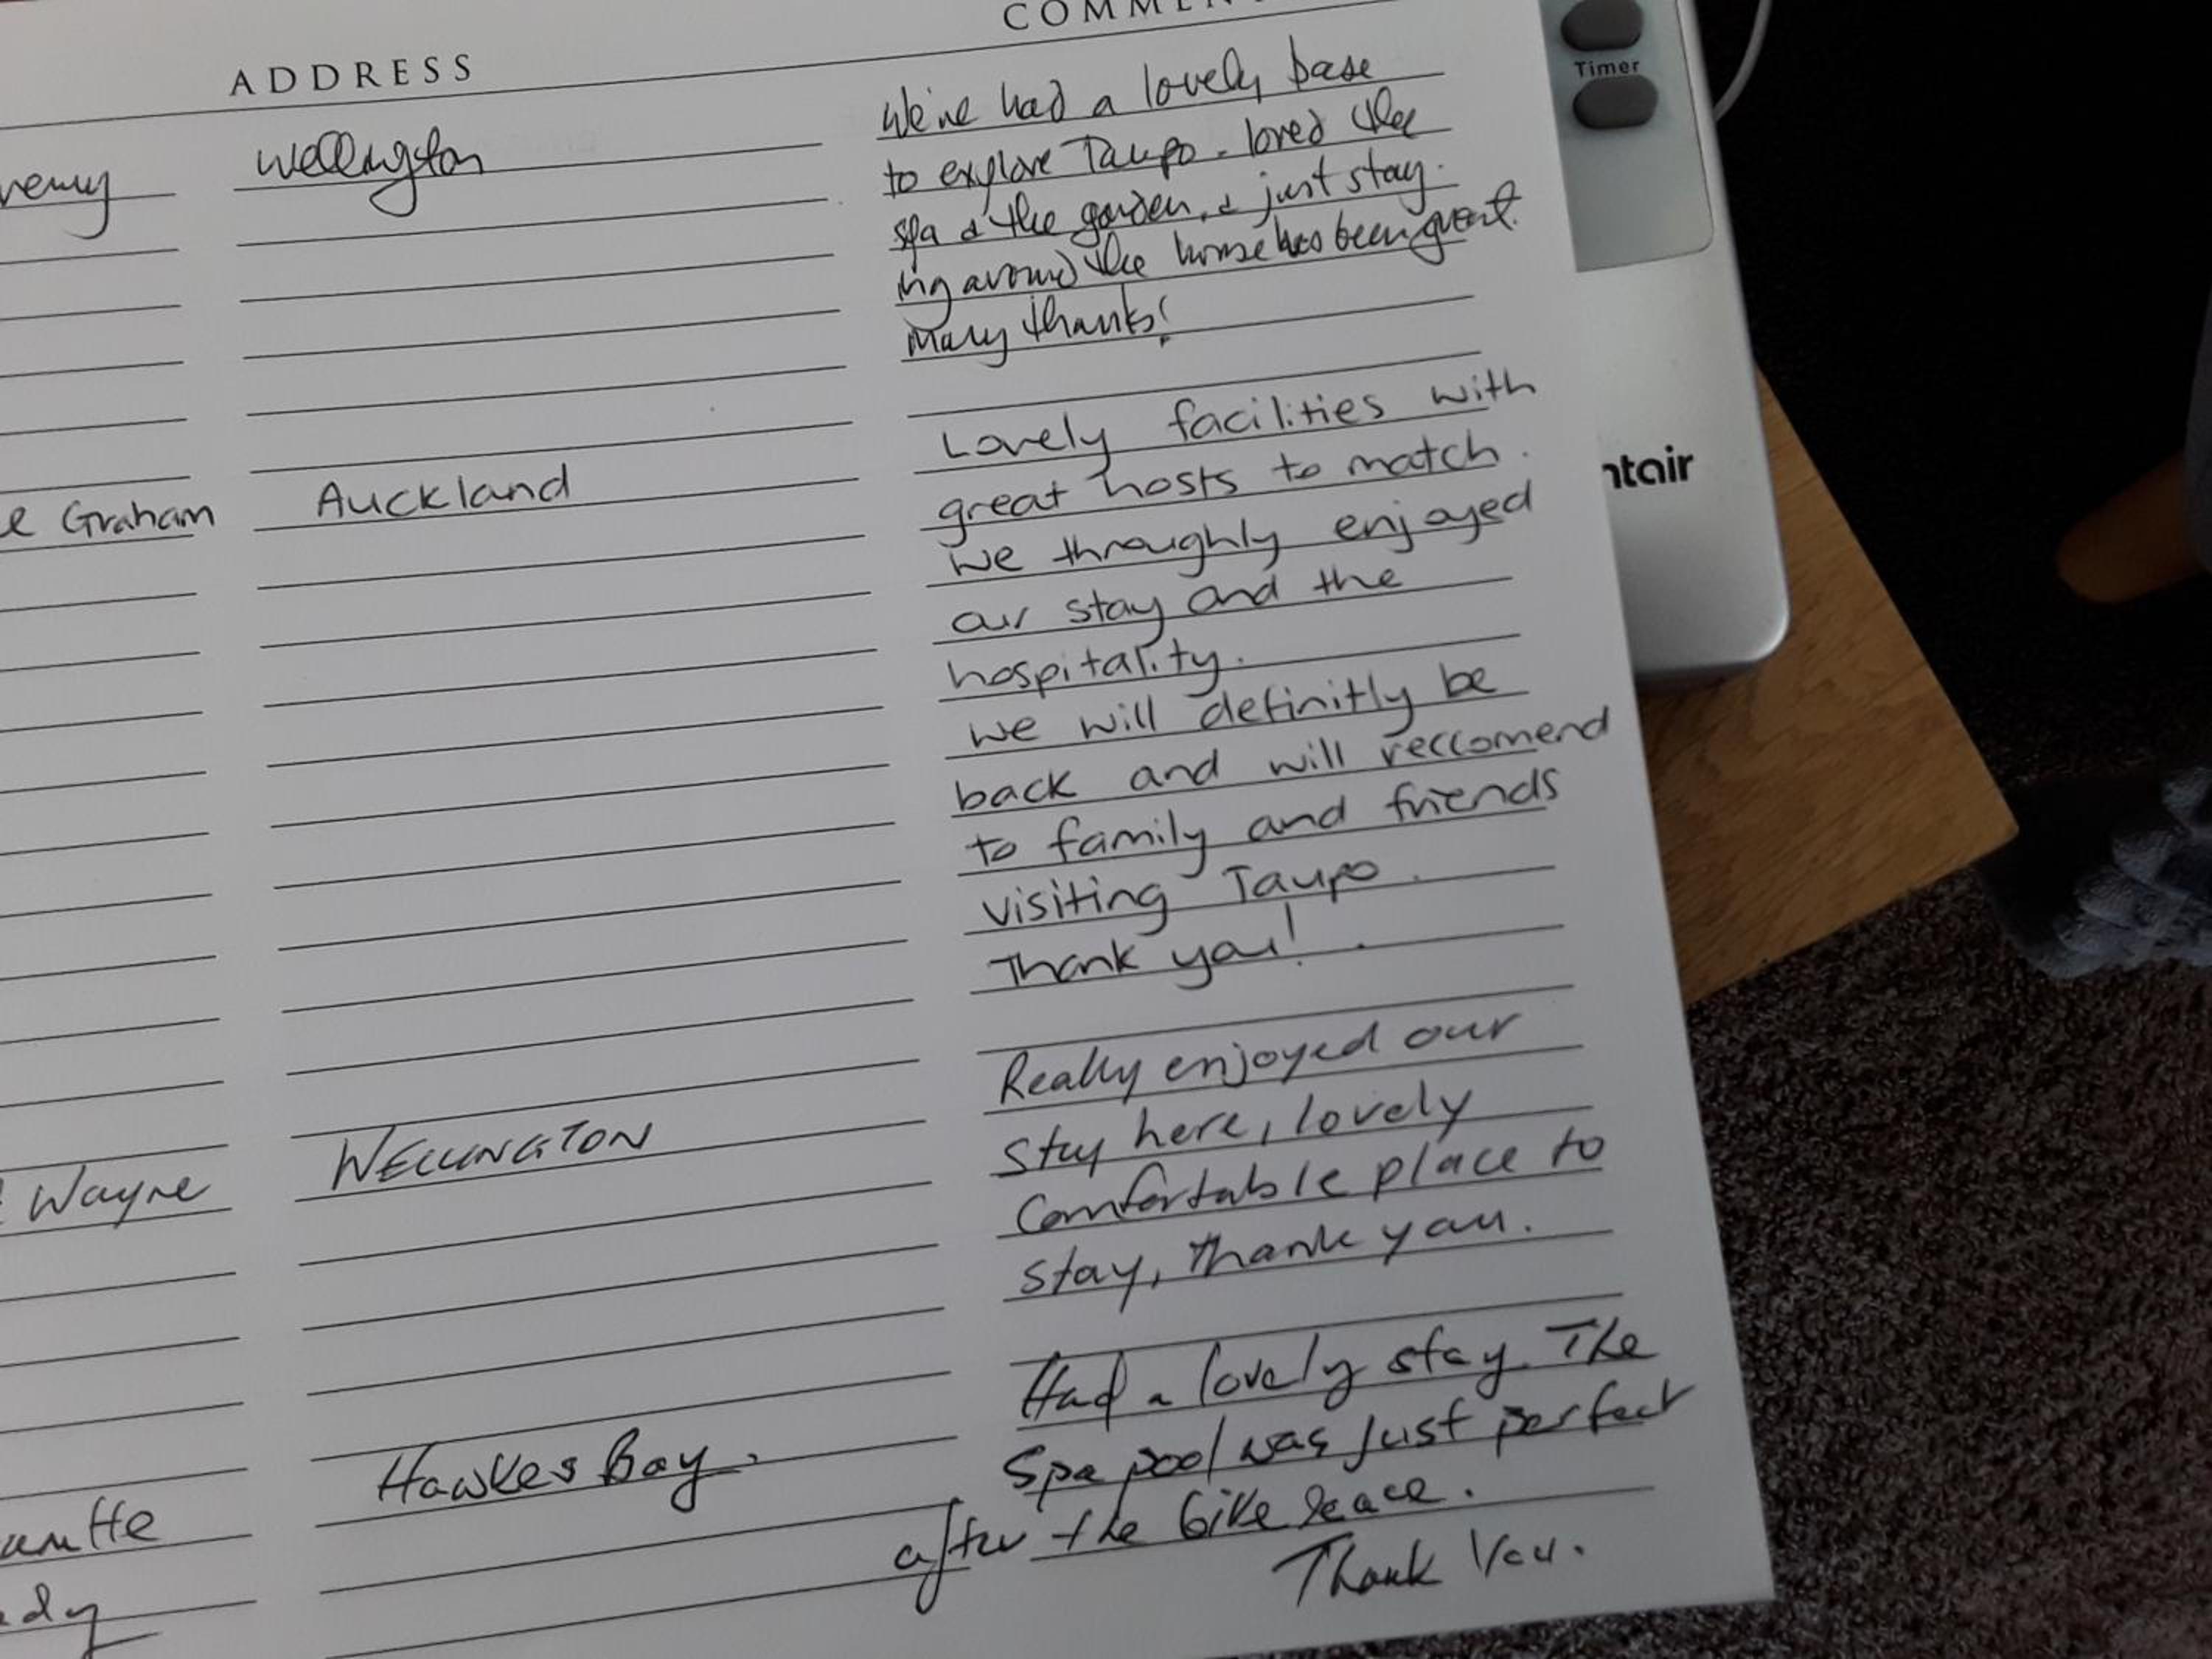 COMMEN
ADDRESS
Wellington
We've had a lovely base
to explore Taupo. loved the
spa & the garden, & just stay-
ing around the home has been great.
Many thanks!
Graham
Auckland
Lovely facilities with
great hosts to match.
We throughly enjoyed
our stay and the
hospitality.
We will definitly be
back and will reccomend
to family and friends
visiting Taupo.
Thank you!
Wayne
WELLINGTON
Really enjoyed our
stay here, lovely
Comfortable place to
stay, thank you.
Hawkes Bay.
Had a lovely stay. The
Spa pool was just perfect
after the bike race.
Thank You.
Timer
ntair